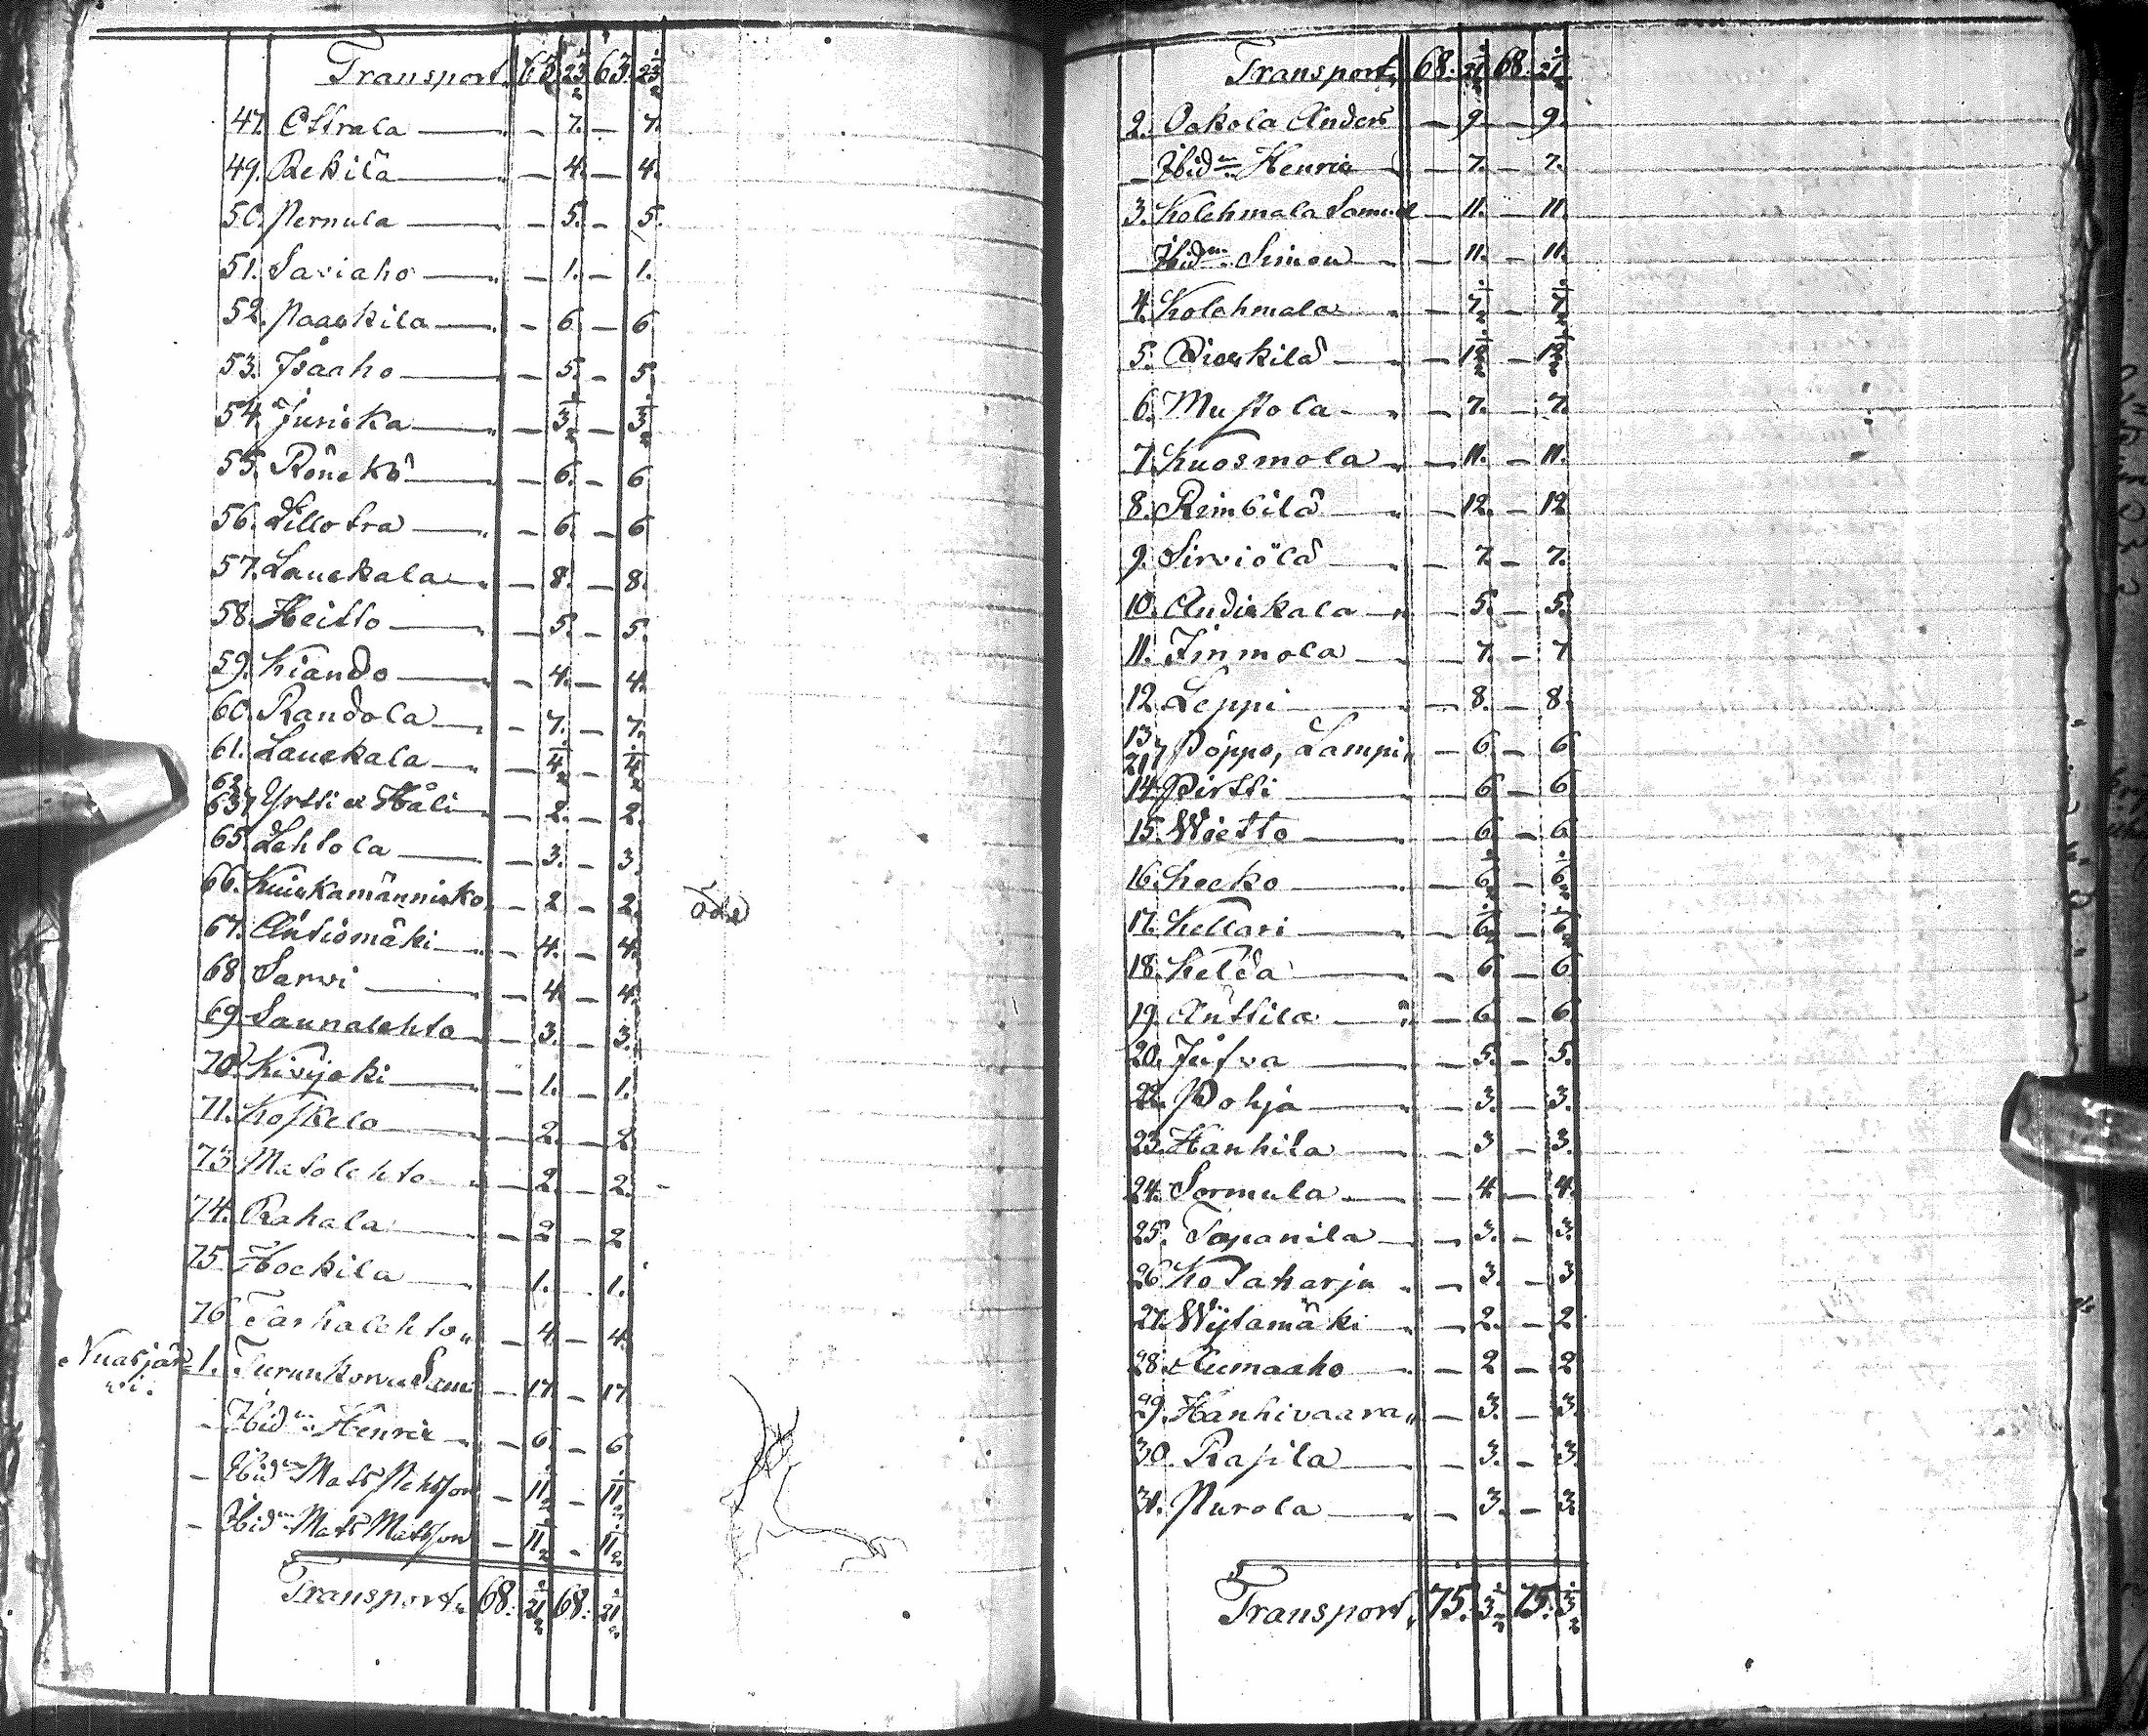 Transport. 63. 23½ 63. 23½
47. Ottrala — 7. — 7.
49. Rekilä — 4. — 4.
50. Pernula — 5. — 5.
51. Saviaho — 1. — 1.
52. Paaskila — 6 — 6
53. Isäaho — 5. — 5.
54. Juricka — 3½ — 3½
55. Rönckö — 6. — 6
56. Lillotra — 6. — 6
57. Lauckala — 8. — 8.
58. Heitto — 5. — 5.
59. Kiando — 4. — 4.
60. Randola — 7. — 7.
61. Lauckala — 4½ — 4½
62. 63. Yrtti et Häli — 2. — 2.
65. Lehtola — 3. — 3
66. Kuiskamännickö — 2 — 2. öde
67. Äntiömäki — 4. — 4.
68. Sarvi — 4. — 4.
69. Saunalehto — 3. — 3.
70. Kivijoki — 1. — 1.
71. Koskelo — 2. — 2
73. Matolehto — 2. — 2.
74. Rahala — 2 — 2
75. Hockila — 1. — 1.
76. Tarhalehto — 4. — 4.
Nuasjärvi. 1. Turunkorva Sam — 17 — 17
— Ibidm Henric — 6. — 6
— Ibidm Mats Pehrsson — 11½ — 11½
— Ibidm Mats Matsson — 11½ — 11½
Transport. 68. 21½ 68. 21½
Transport. 68. 21½ 68. 21½
2. Ookola Anders — 9. — 9.
— Ibidm Henric — 7. — 7.
3. Kolehmala Samuel — 11. — 11.
— Ibidm Simon — 11. — 11.
4. Kolehmala — 7½ — 7½
5. Pieskilä — 12½ — 12½
6. Mustola — 7. — 7.
7. Kuosmola — 11. — 11.
8. Rimbilä — 12. — 12
9. Sirviölä — 7. — 7.
10. Andiskala — 5. — 5.
11. Jinmola — 7. — 7
12. Leppi — 8. — 8.
13. 21. Pöppö, Lampi — 6 — 6
14. Pirtti — 6 — 6
15. Wietto — 6 — 6
16. Kocko — 6½ — 6½
17. Kellari — 6½ — 6½
18. Kelda — 6 — 6
19. Anttila — 6 — 6
20. Jufva — 5. — 5.
22. Pohja — 3. — 3.
23. Hanhila — 3 — 3.
24. Sormula — 4 — 4.
25. Tapanila — 3. — 3.
26. Kotaharju — 3. — 3
27. Wijtamäki — 2. — 2
28. Aumaaho — 2 — 2
29. Hanhivaara — 3. — 3.
30. Rapila — 3. — 3.
31. Purola — 3. — 3
Transport. 75. 3½ 75. 3½